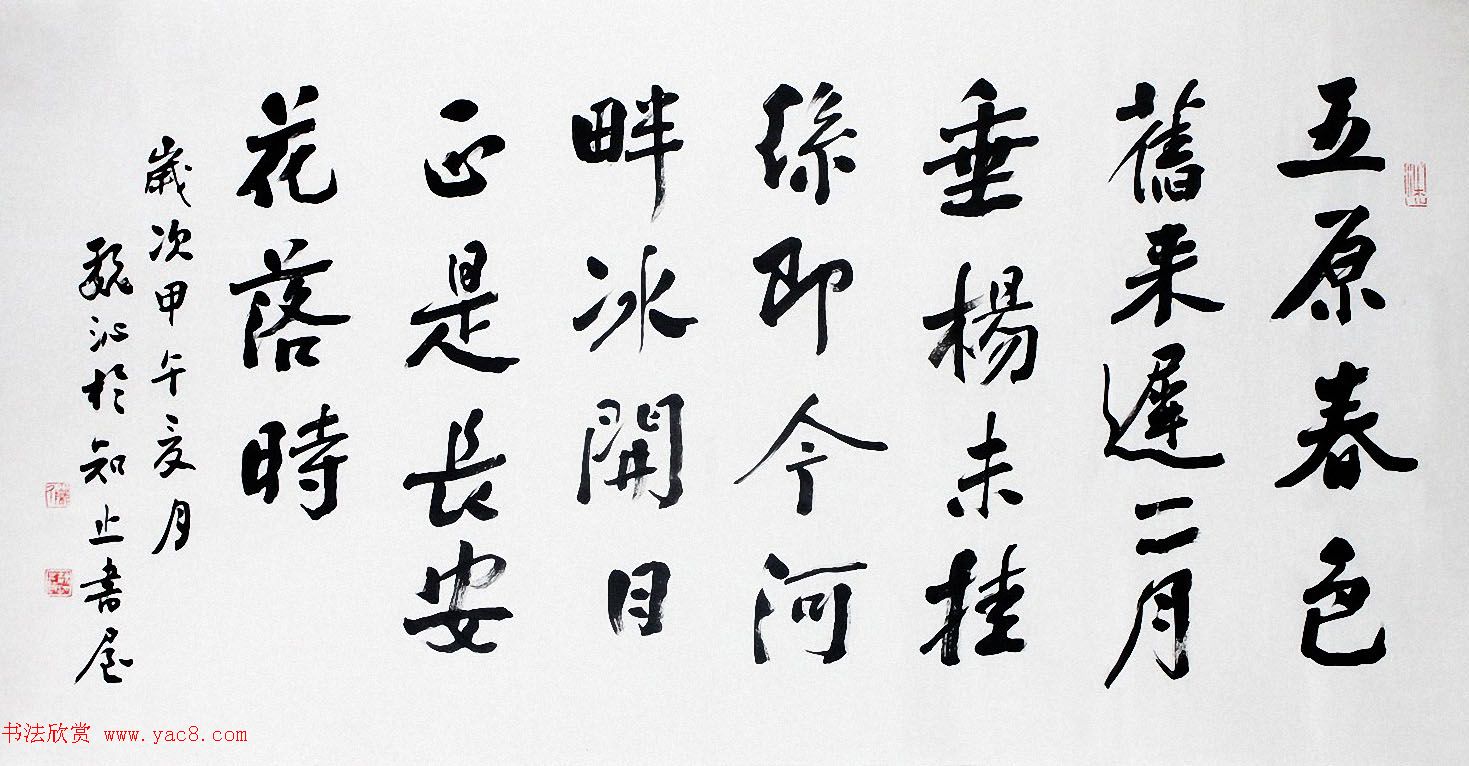 五原春色
舊来遲二月
垂楊未挂
絲即今河
畔冰開日
正是長安
花落時
歲次甲午亥月
魏沁於知止書屋
书法欣赏 www.yac8.com